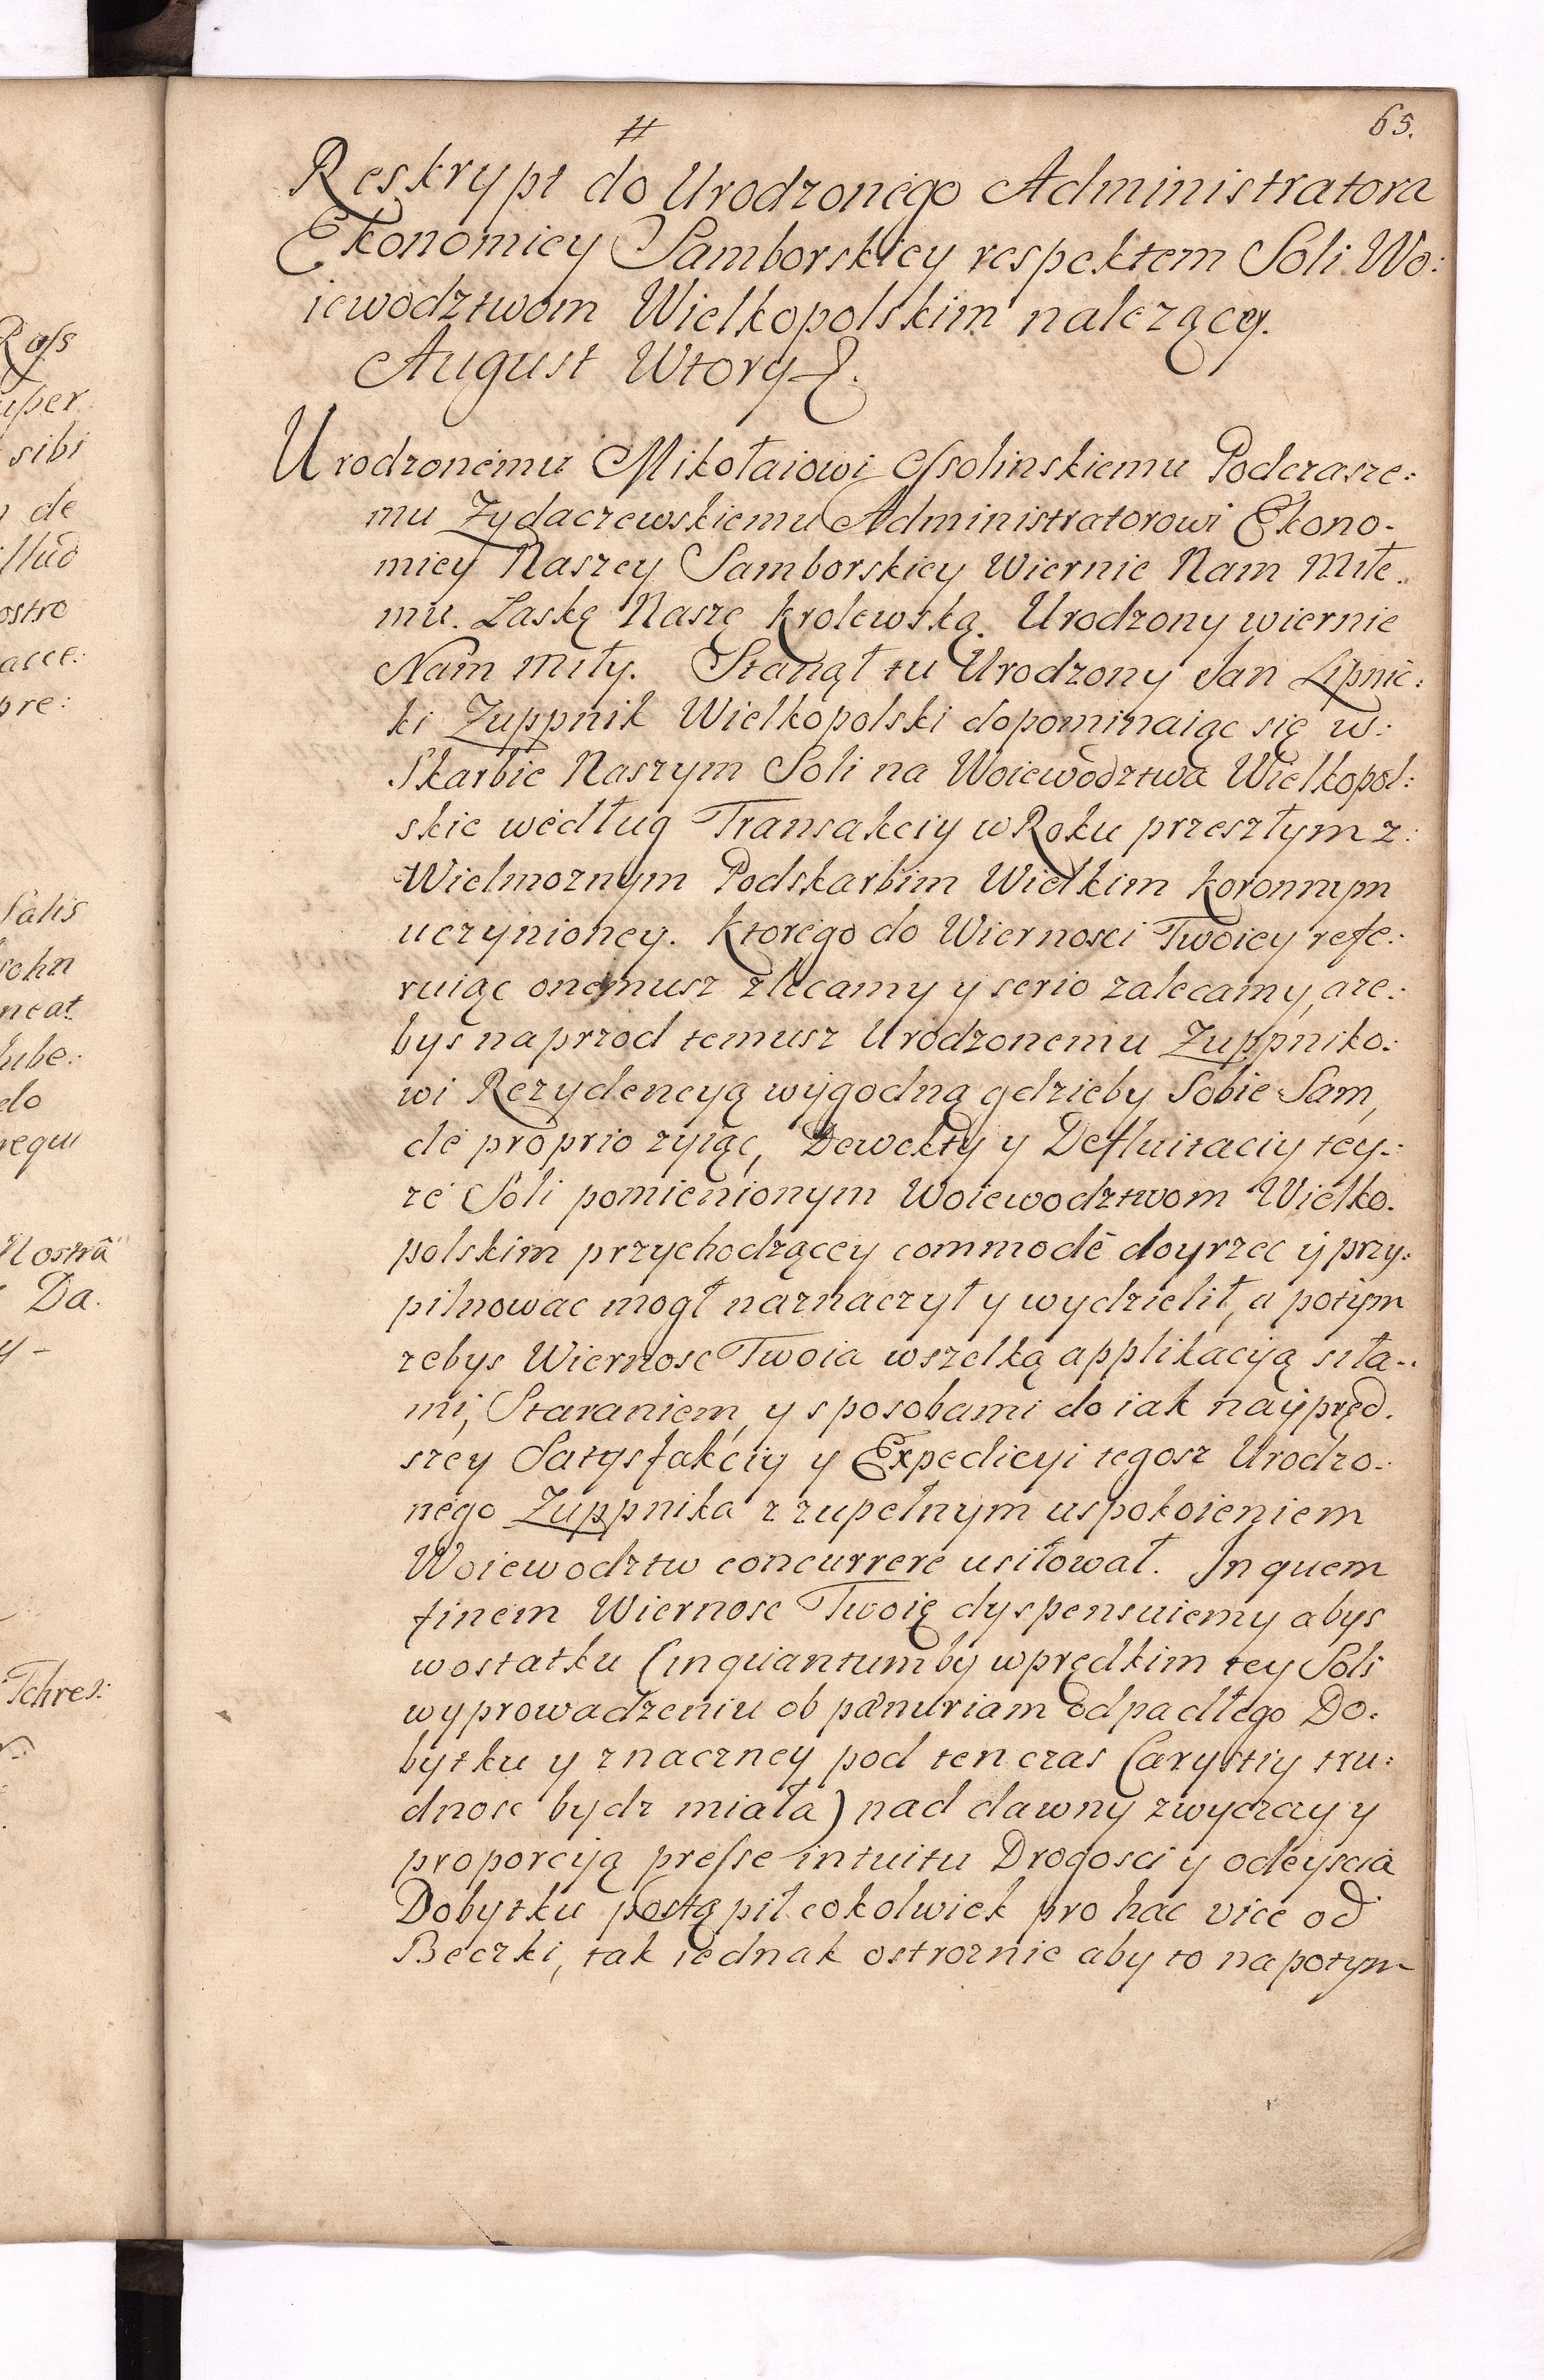 65.
#
Reskrypt do Urodzonego Administratora
Ekonomiey Samborskiey respektem Soli Wo:
iewodztwom Wielkopolskim nalezącey.
August Wtory &.
Urodzonemu Mikołaiowi Ossolinskiemu Podczasze:
mu Zydaczewskiemu Administratorowi Ekono-
miey Naszey Samborskiey Wiernie Nam Miłe.
mu. Laskę Naszę krolewską. Urodzony wiernie
Nam Miły. Stanął tu Urodzony Jan Lipnic:
ki Zuppnik Wielkopolski dopominaiąc się w:
Skarbie Naszym Soli na Woiewodztwa Wielkopol:
skie według Transakciy w Roku przeszłym z:
Wielmoznym Podskarbim Wielkim koronnym
uczynioney. Ktorego do Wiernosci Twoiey refe:
ruiąc onemusz zlecamy y serio zalecamy, aze:
bys naprzod temusz Urodzonemu Zuppniko:
wi Rezydencyą wygodną gdzieby Sobie Sam,
de proprio zyiąc, Dewekty y Defluitaciy tey-:
ze Soli pomienionym Woiewodztwom Wielko.
polskim przychodzącey commodē doyrzec y przy:
pilnowac mogł naznaczył y wydzielił, a potym
zebys Wiernosc Twoia wszelką applikacyą siła-.
mi, Staraniem, y sposobami do iak naypręd.
szey Satysfakciy y Expedicyi tegosz Urodzo-:
nego Zuppnika z zupełnym uspokoieniem
Woiewodztw concurrere usiłował. In quem
finem Wiernosc Twoię dyspensuiemy abys
w ostatku (inquantumby wprędkim tey Soli
wyprowadzeniu ob pænuriam odpadłego Do.
bytku y znaczney pod ten czas Carystiy tru:
dnosc bydz miała) nad dawny zwyczay y
proporcyą presse intuitu Drogosci y odeyscia
Dobytku postąpił cokolwiek pro hac vice od
Beczki, tak iednak ostroznie aby to napotym
Salis
sibi
de
Da.